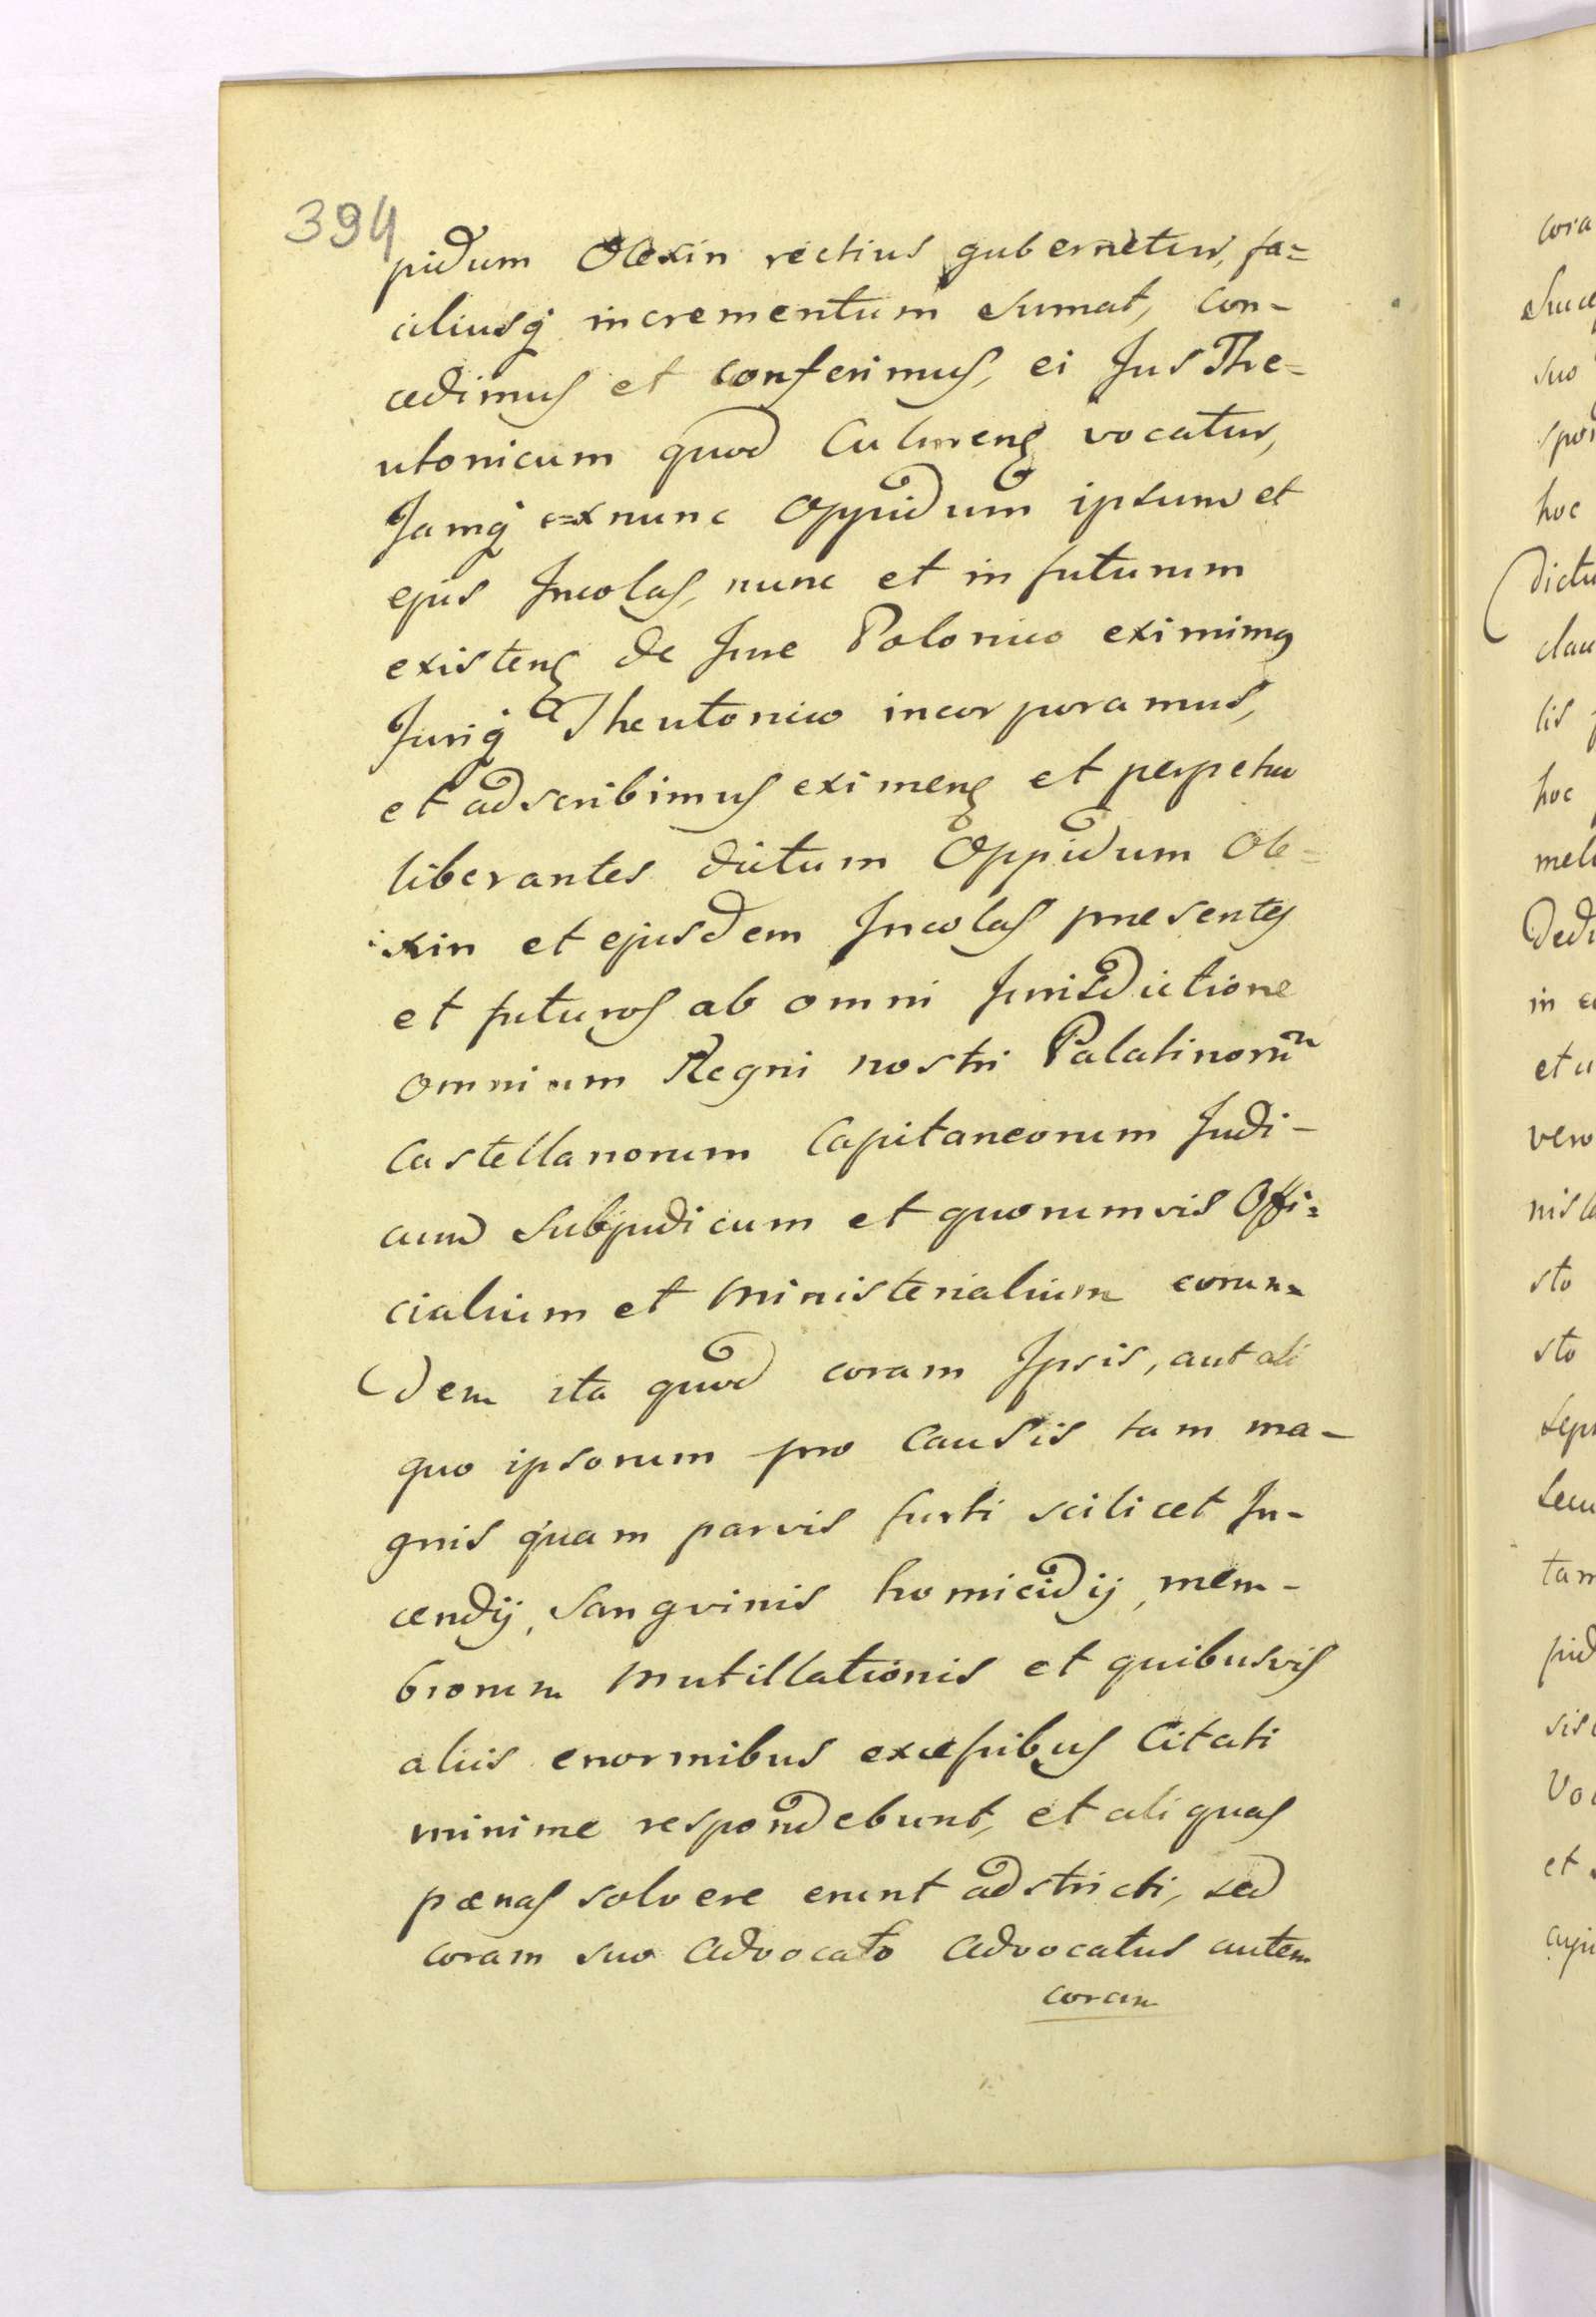 394
pidum Olexin rectius gubernetur, fa=
ciliusq incrementum sumat, con-
cedimus et conferimus, ei Jus The=
utonicum quod Culmens vocatur,
Jamq exnunc Oppidum ipsum et
ejus Incolas, nunc et in futurum
existens de Jure Polonico eximimus
Juriq Theutonico incorporamus,
et adscribimus eximens et perpetuo
liberantes dictum Oppidum Ole=
xin et ejusdem Incolas presentes
et futuros ab omni Jurisdictione
omnium Regni nostri Palatinorum
Castellanorum Capitaneorum Judi-
cum Subjudicum et quorumvis Offi=
cialium et Ministerialium eorun=
dem ita quod coram Ipsis, aut ali
quo ipsorum pro Causis tam ma-
gnis quam parvis furti scilicet In-
cendij, Sangvinis homicidij, mem-
brorum Mutillationis et quibusvis
aliis enormibus excessibus Citati
minime respondebunt, et aliquas
pænas solvere erunt adstricti, sed
coram suo Advocato Advocatus autem
coram
cora
suo
hoc
Dictu
clau
lis
hoc
in
vero
sto
sto
tam
et